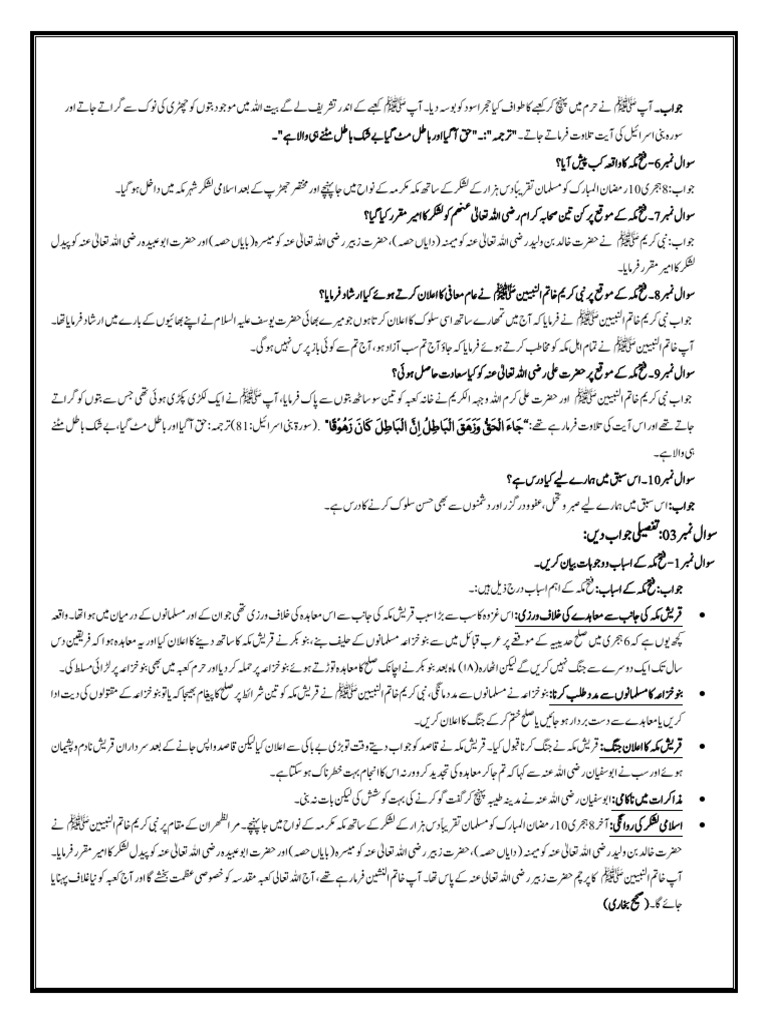 جواب۔ آپ ﷺ نے حرم میں پہنچ کر کعبے کا طواف کیا حجر اسود کو بوسہ دیا۔ آپ ﷺ کعبے کے اندر تشریف لے گے بیت اللہ میں موجود بتوں کو چھڑی کی نوک سے گراتے جاتے اور
سورہ بنی اسرائیل کی آیت تلاوت فرماتے جاتے۔ "ترجمہ":۔"حق آگیا اور باطل مٹ گیا بے شک باطل مٹنے ہی والا ہے"۔
سوال نمبر 6- فتح مکہ کا واقعہ کب پیش آیا؟
جواب: 8 ہجری 10 رمضان المبارک کو مسلمان تقریباً دس ہزار کے لشکر کے ساتھ مکہ مکرمہ کے نواح میں جا پہنچے اور مختصر جھڑپ کے بعد اسلامی لشکر شہر مکہ میں داخل ہو گیا۔
سوال نمبر 7۔ فتح مکہ کے موقع پر کن تین صحابہ کرام رضی اللہ تعالیٰ عنھم کو لشکر کا امیر مقرر کیا گیا؟
جواب: نبی کریم ﷺ نے حضرت خالد بن ولید رضی اللہ تعالیٰ عنہ کو میمنہ (دایاں حصہ)، حضرت زبیر رضی اللہ تعالیٰ عنہ کو میسرہ (بایاں حصہ) اور حضرت ابو عبیدہ رضی اللہ تعالیٰ عنہ کو پیدل
لشکر کا امیر مقرر فرمایا۔
سوال نمبر 8۔ فتح مکہ کے موقع پر نبی کریم خاتم النبیین ﷺ نے عام معافی کا اعلان کرتے ہوئے کیا ارشاد فرمایا؟
جواب نبی کریم خاتم النبیین ﷺ نے فرمایا کہ آج میں تمھارے ساتھ اسی سلوک کا اعلان کرتا ہوں جو میرے بھائی حضرت یوسف علیہ السلام نے اپنے بھائیوں کے بارے میں ارشاد فرمایا تھا۔
آپ خاتم النبیین ﷺ نے تمام اہل مکہ کو مخاطب کرتے ہوئے فرمایا کہ جاؤ آج تم سب آزاد ہو، آج تم سے کوئی باز پرس نہیں ہو گی۔
سوال نمبر 9۔ فتح مکہ کے موقع پر حضرت علی رضی اللہ تعالیٰ عنہ کو کیا سعادت حاصل ہوئی؟
جواب نبی کریم خاتم النبیین ﷺ اور حضرت علی کرم اللہ وجہہ الکریم نے خانہ کعبہ کو تین سو ساٹھ بتوں سے پاک فرمایا، آپ ﷺ نے ایک لکڑی پکڑی ہوئی تھی جس سے بتوں کو گراتے
جاتے تھے اور اس آیت کی تلاوت فرما رہے تھے: "جَاءَ الْحَقُّ وَزَهَقَ الْبَاطِلُ إِنَّ الْبَاطِلَ كَانَ زَهُوقًا" .(سورۃ بنی اسرائیل: 81) ترجمہ: حق آگیا اور باطل مٹ گیا، بے شک باطل مٹنے
ہی والا ہے۔
سوال نمبر 10۔ اس سبق میں ہمارے لیے کیا درس ہے؟
جواب: اس سبق میں ہمارے لیے صبر و تحمل، عفو و درگزر اور دشمنوں سے بھی حسن سلوک کرنے کا درس ہے۔
سوال نمبر 03: تفصیلی جواب دیں:
سوال نمبر 1- فتح مکہ کے اسباب و وجوہات بیان کریں۔
جواب: فتح مکہ کے اسباب: فتح مکہ کے اہم اسباب درج ذیل ہیں:۔
• قریش مکہ کی جانب سے معاہدے کی خلاف ورزی: اس غزوہ کا سب سے بڑا سبب قریش مکہ کی جانب سے اس معاہدہ کی خلاف ورزی تھی جو ان کے اور مسلمانوں کے درمیان میں ہوا تھا۔ واقعہ
کچھ یوں ہے کہ 6 ہجری میں صلح حدیبیہ کے موقعے پر عرب قبائل میں سے بنو خزاعہ مسلمانوں کے حلیف بنے، بنو بکر نے قریش مکہ کا ساتھ دینے کا اعلان کیا اور یہ معاہدہ ہوا کہ فریقین دس
سال تک ایک دوسرے سے جنگ نہیں کریں گے لیکن اٹھارہ (۱۸) ماہ بعد بنو بکر نے اچانک صلح کا معاہدہ توڑتے ہوئے بنو خزاعہ پر حملہ کر دیا اور حرم کعبہ میں بھی بنو خزاعہ پر لڑائی مسلط کی۔
• بنو خزاعہ کا مسلمانوں سے مدد طلب کرنا: بنو خزاعہ نے مسلمانوں سے مدد مانگی، نبی کریم خاتم النبیین ﷺ نے قریش مکہ کو تین شرائط پر صلح کا پیغام بھیجا کہ یا تو بنو خزاعہ کے مقتولوں کی دیت ادا
کریں یا معاہدے سے دست بردار ہو جائیں یا صلح ختم کر کے جنگ کا اعلان کریں۔
• قریش مکہ کا اعلان جنگ: قریش مکہ نے جنگ کرنا قبول کیا۔ قریش مکہ نے قاصد کو جواب دیتے وقت تو بڑی بے باکی سے اعلان کیا لیکن قاصد واپس جانے کے بعد سرداران قریش نادم و پشیمان
ہوئے اور سب نے ابوسفیان رضی اللہ عنہ سے کہا کہ تم جا کر معاہدہ کی تجدید کرو ورنہ اس کا انجام بہت خطرناک ہو سکتا ہے۔
• مذاکرات میں ناکامی: ابوسفیان رضی اللہ عنہ نے مدینہ طیبہ پہنچ کر گفت گو کرنے کی بہت کوشش کی لیکن بات نہ بنی۔
• اسلامی لشکر کی روانگی: آخر 8 ہجری 10 رمضان المبارک کو مسلمان تقریباً دس ہزار کے لشکر کے ساتھ مکہ مکرمہ کے نواح میں جا پہنچے۔ مر الظھران کے مقام پر نبی کریم خاتم النبیین ﷺ نے
حضرت خالد بن ولید رضی اللہ تعالیٰ عنہ کو میمنہ (دایاں حصہ)، حضرت زبیر رضی اللہ تعالیٰ عنہ کو میسرہ (بایاں حصہ) اور حضرت ابو عبیدہ رضی اللہ تعالیٰ عنہ کو پیدل لشکر کا امیر مقرر فرمایا۔
آپ خاتم النبیین ﷺ کا پرچم حضرت زبیر رضی اللہ تعالی عنہ کے پاس تھا۔ آپ خاتم النشین فرما رہے تھے، آج اللہ تعالی کعبہ مقدسہ کو خصوصی عظمت بخشے گا اور آج کعبہ کو نیا غلاف پہنایا
جائے گا۔ (صحیح بخاری)